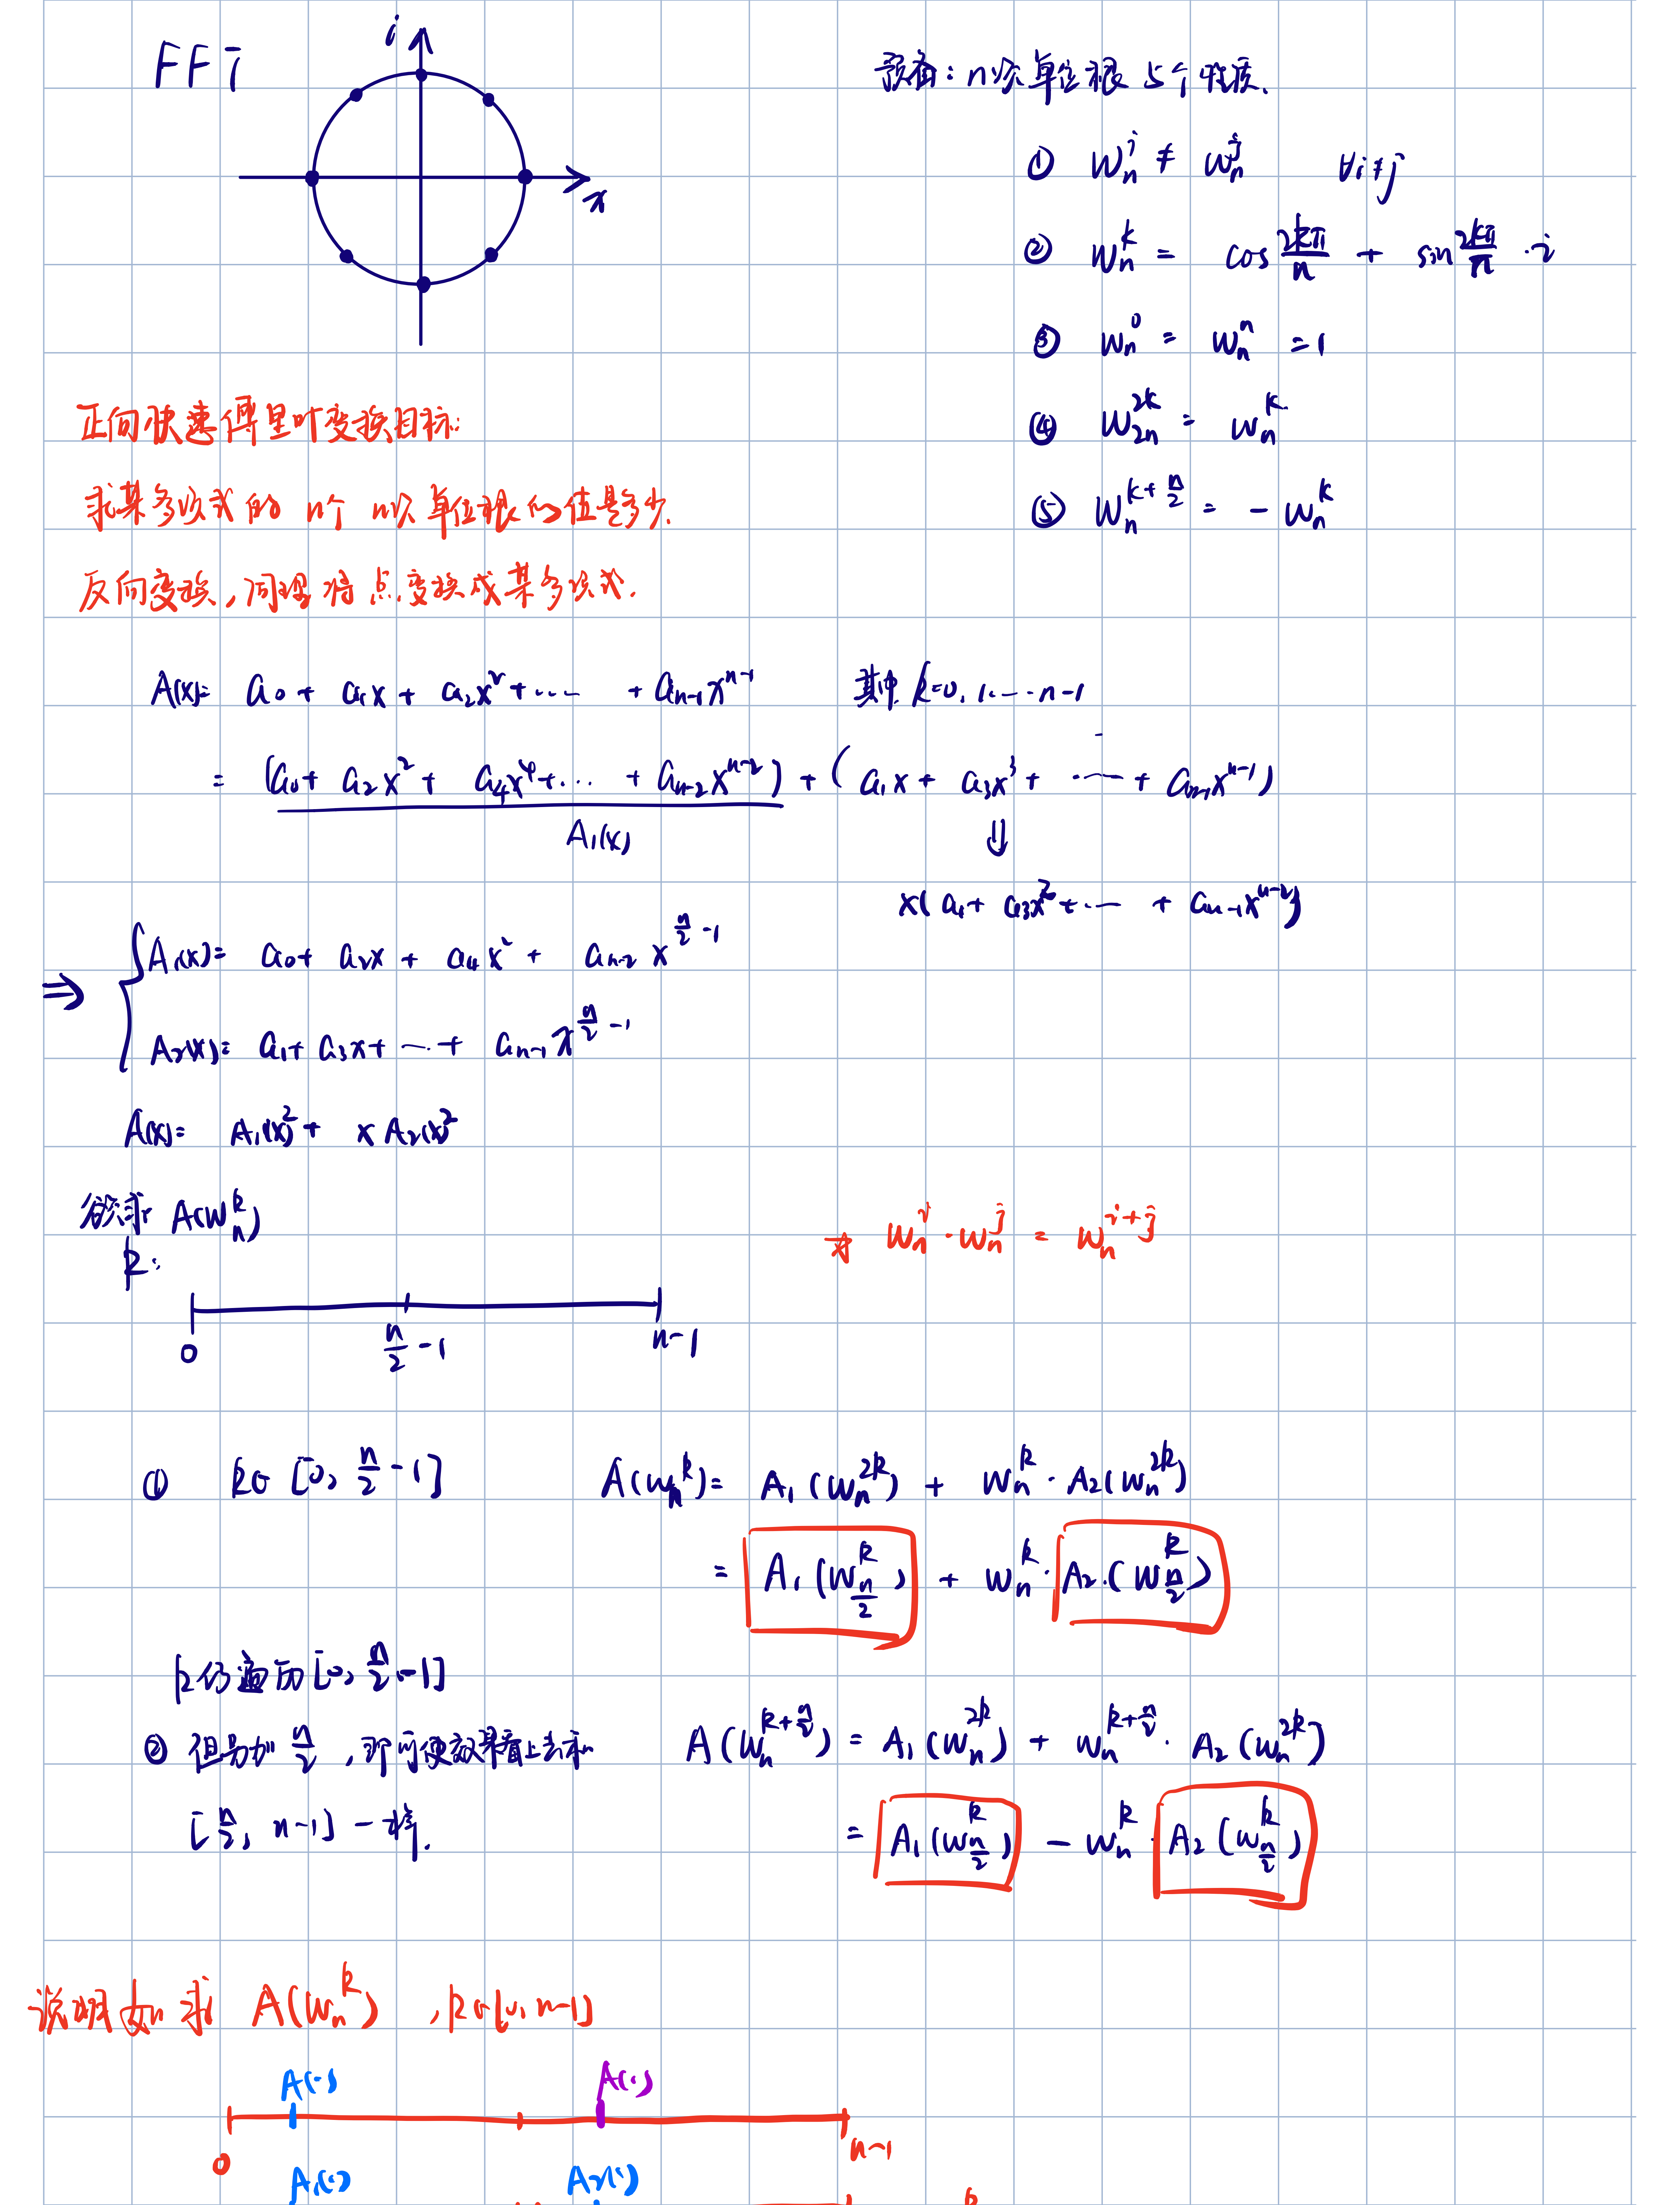 FFT
i
x
预备：n次单位根 5个性质.
① W_n^i ≠ W_n^j ∀i≠j
② W_n^k = cos 2kπ/n + sin 2kπ/n · i
③ W_n^0 = W_n^n = 1
④ W_{2n}^{2k} = W_n^k
⑤ W_n^{k+n/2} = - W_n^k
正向快速傅里叶变换目标:
求某多项式的 n个 n次单位根的值是多少.
反向变换, 同理将点变换成某多项式.
A(x)= a₀+ a₁x + a₂x²+...... + a_{n-1}x^{n-1} 其中 k=0, 1......n-1
= (a₀+ a₂x²+ a₄x⁴+... + a_{n-2}x^{n-2}) + (a₁x + a₃x³+ ...... + a_{n-1}x^{n-1})
A₁(x) ⇓
x(a₁+ a₃x²+...... + a_{n-1}x^{n-2})
⇒ { A₁(x)= a₀+ a₂x + a₄x²+ a_{n-2} x^{n/2 -1}
A₂(x)= a₁+ a₃x+......+ a_{n-1} x^{n/2 -1}
A(x)= A₁(x)²+ xA₂(x)²
欲求 A(W_n^k)
k:
☆ W_n^i · W_n^j = W_n^{i+j}
0 n/2 -1 n-1
① k∈ [0, n/2 -1] A(W_n^k)= A₁(W_n^{2k}) + W_n^k · A₂(W_n^{2k})
= A₁(W_{n/2}^k) + W_n^k · A₂.(W_{n/2}^k)
k仍遍历[0, n/2 -1]
② 但另加 n/2 , 即可使效果看上去和 A(W_n^{k+n/2}) = A₁(W_n^{2k}) + W_n^{k+n/2} · A₂(W_n^{2k})
[n/2, n-1] 一样. = A₁(W_{n/2}^k) - W_n^k · A₂(W_{n/2}^k)
说明如求 A(W_n^k) , k∈[0, n-1]
A(·) A(·)
0 n-1
A₁(·) A₂(·)